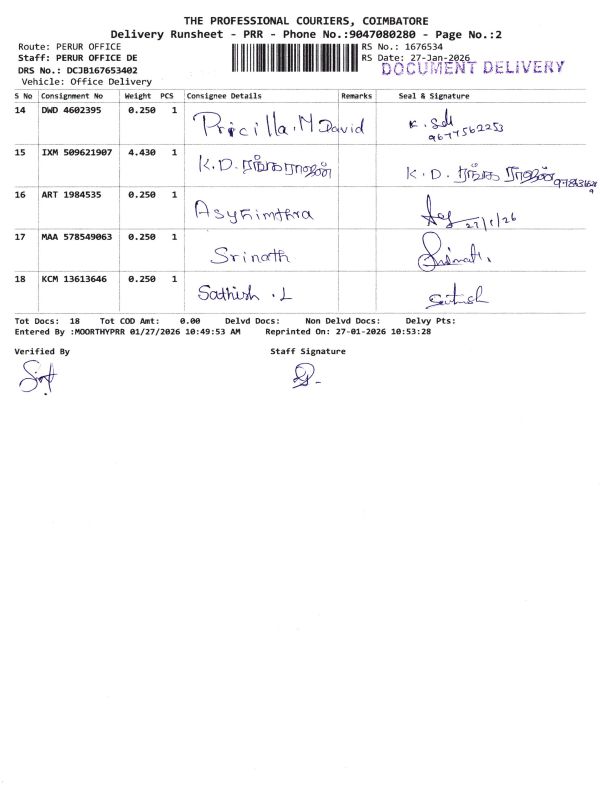 THE PROFESSIONAL COURIERS, COIMBATORE
Delivery Runsheet - PRR - Phone No.:9047080280 - Page No.:2
Route: PERUR OFFICE RS No.: 1676534
Staff: PERUR OFFICE DE RS Date: 27-Jan-2026
DRS No.: DCJB167653402 DOCUMENT DELIVERY
Vehicle: Office Delivery
S No Consignment No Weight PCS Consignee Details Remarks Seal & Signature
14 DWD 4602395 0.250 1 Pricilla.M David 9677562253
15 IXM 509621907 4.430 1 K.D. ரங்கராஜன் K.D. ரங்கராஜன்
16 ART 1984535 0.250 1 27/1/26
17 MAA 578549063 0.250 1 Srinath
18 KCM 13613646 0.250 1 Sathish .L
Tot Docs: 18 Tot COD Amt: 0.00 Delvd Docs: Non Delvd Docs: Delvy Pts:
Entered By :MOORTHYPRR 01/27/2026 10:49:53 AM Reprinted On: 27-01-2026 10:53:28
Verified By Staff Signature